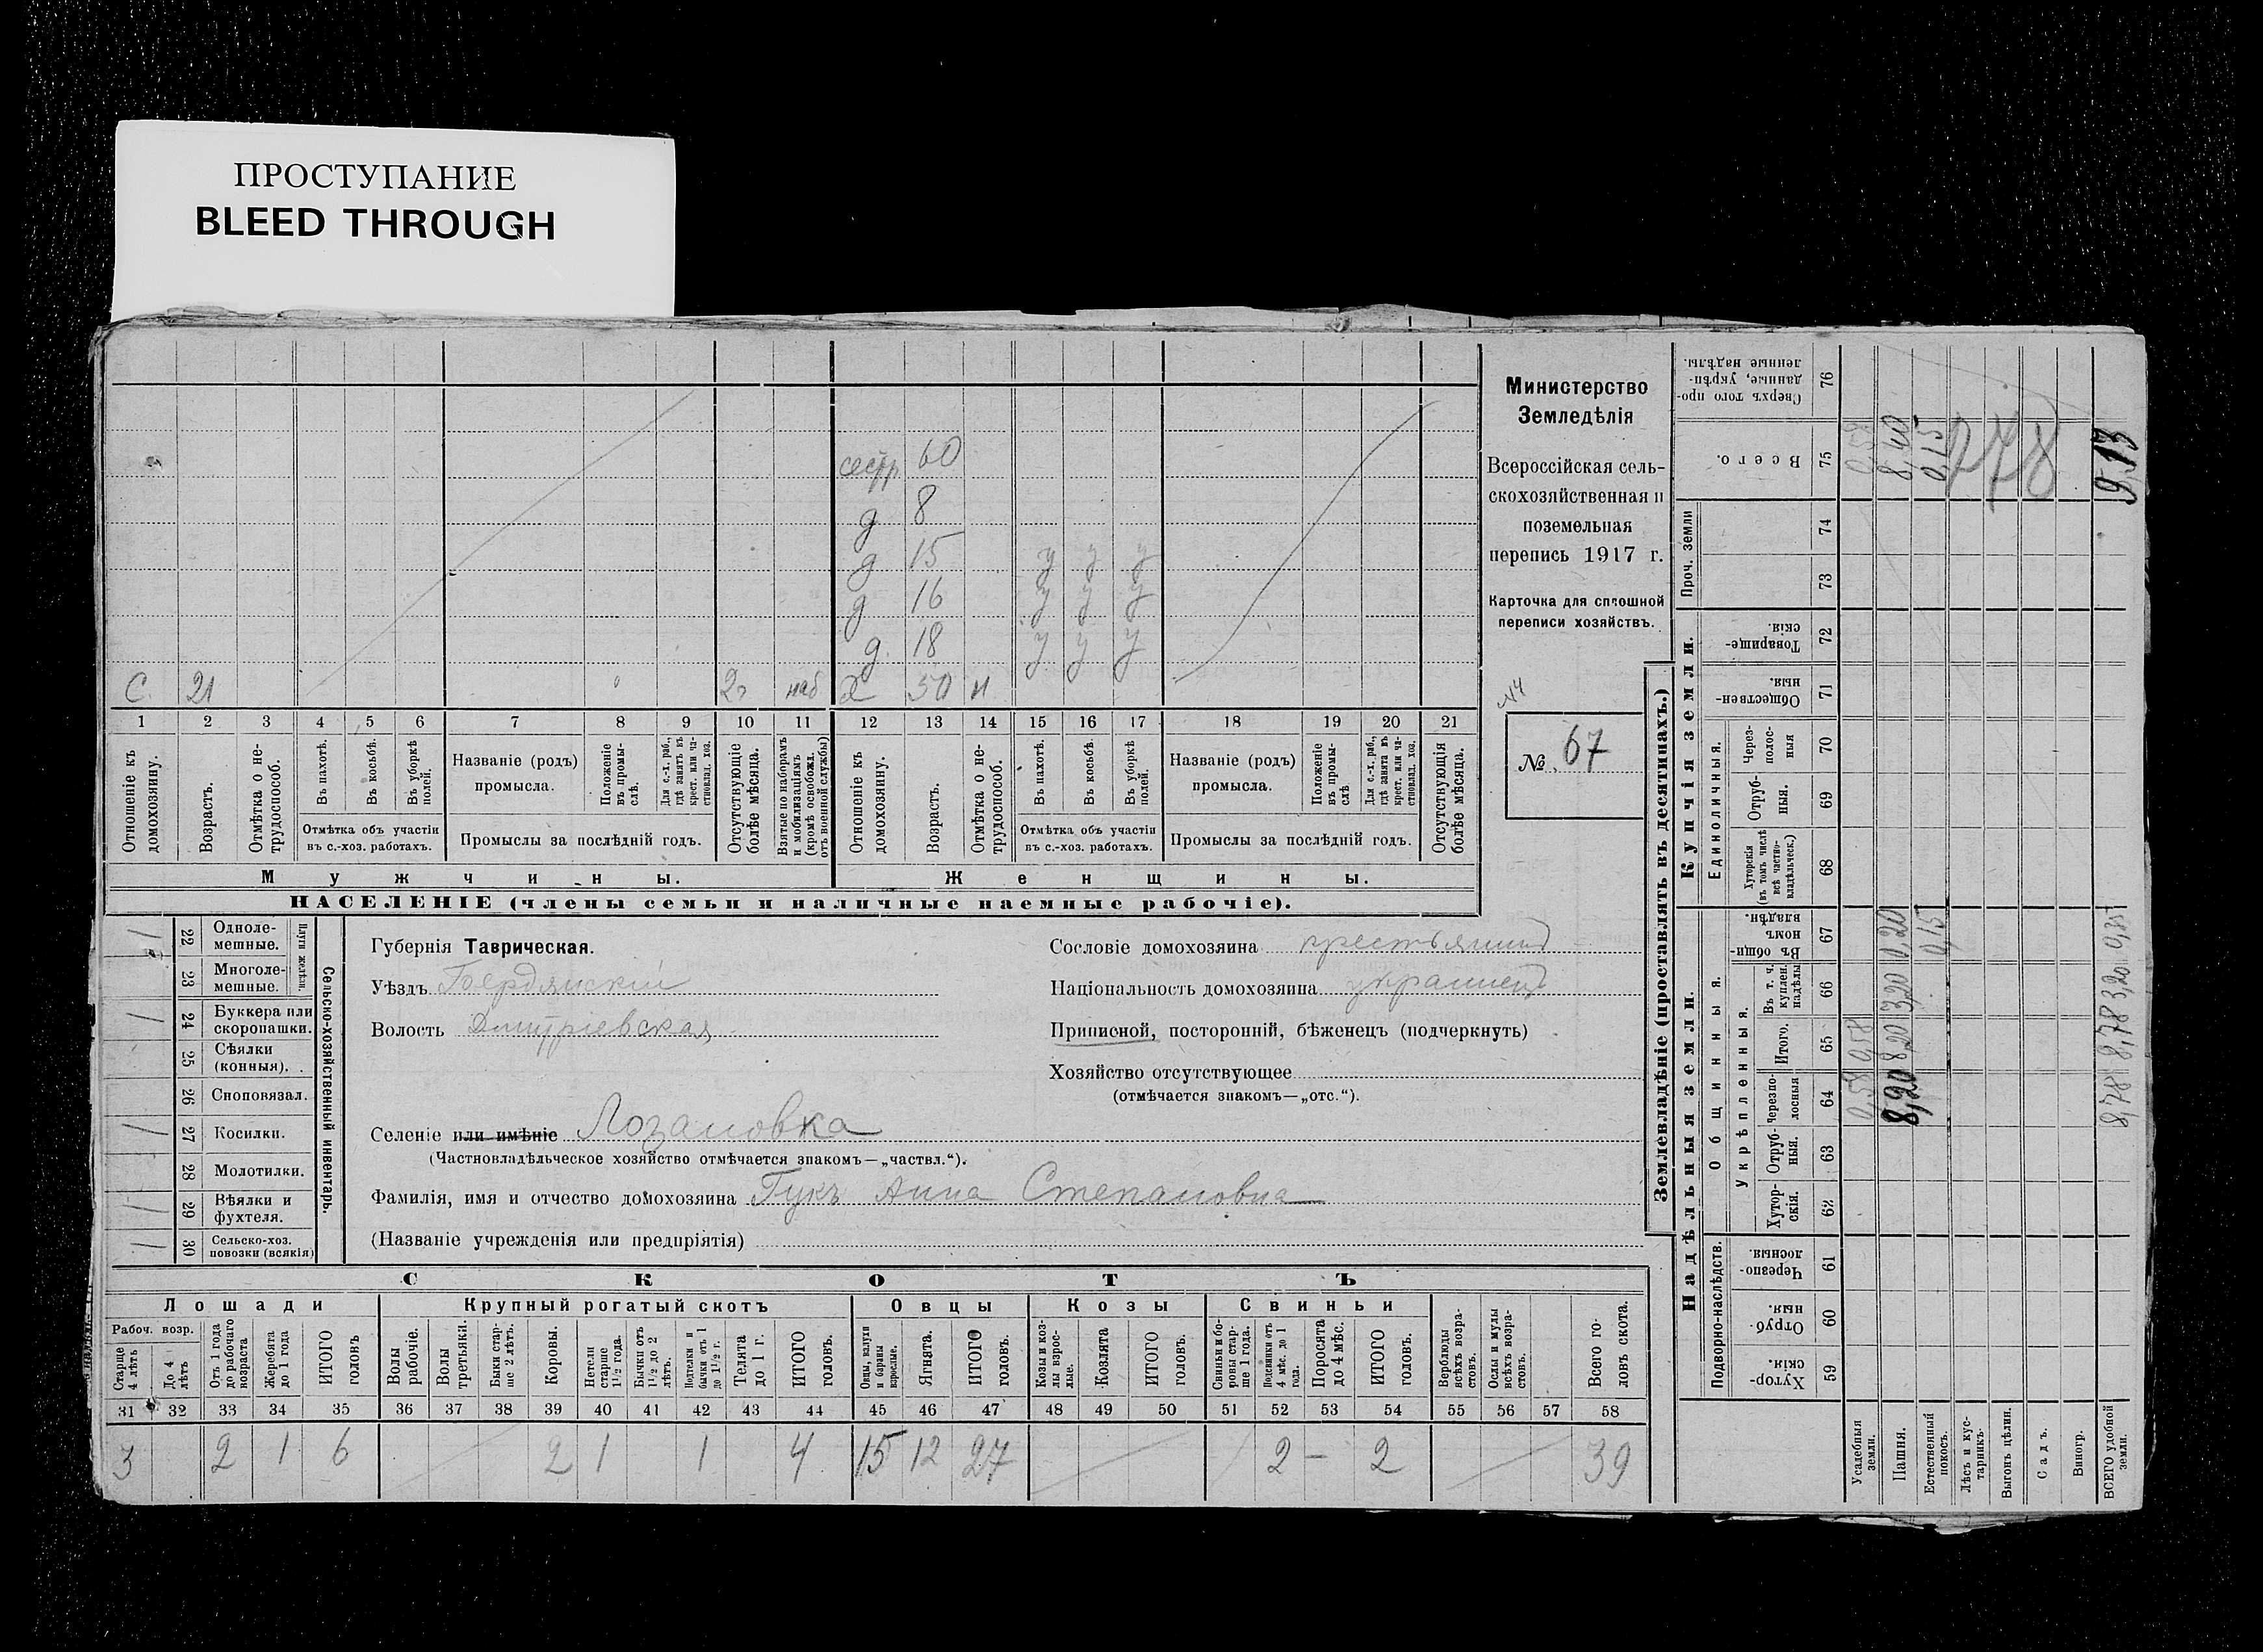 ПРОСТУПАНИЕ
BLEED THROUGH
сестр. 60
д 8
д 15 у у у
д 16 у у у
д. 18 у у у
С. 21 наб 50 н
1 2 3 4 5 6 7 8 9 10 11 12 13 14 15 16 17 18 19 20 21
Отношеніе къ домохозяину.
Возрастъ.
Отмѣтка о не-трудоспособ.
Въ пахотѣ.
Въ косьбѣ.
Въ уборкѣ полей.
Отмѣтка объ участіи
въ с.-хоз. работахъ.
Названіе (родъ)
промысла.
Положеніе въ промы-слѣ.
Для с.-х. раб., гдѣ занятъ въ крест. или ча-стновлад. хоз.
Промыслы за послѣдній годъ.
Отсутствующіе болѣе мѣсяца.
Взятые по наборамъ и мобилизаціямъ (кромѣ освобожд. отъ военной службы)
Отношеніе къ домохозяину.
Возрастъ.
Отмѣтка о не-трудоспособ.
Въ пахотѣ.
Въ косьбѣ.
Въ уборкѣ полей.
Отмѣтка объ участіи
въ с.-хоз. работахъ.
Названіе (родъ)
промысла.
Положеніе въ промы-слѣ
Для с.-х. раб., гдѣ занята въ крест. или ча-стновлад. хоз.
Промыслы за послѣдній годъ.
Отсутствующія болѣе мѣсяца.
Мужчины.
Женщины.
НАСЕЛЕНІЕ (члены семьи и наличные наемные рабочіе).
Министерство
Земледѣлія
Всероссійская сель-
скохозяйственная и
поземельная
перепись 1917 г.
Карточка для сплошной
переписи хозяйствъ.
№ 67
Сельско-хозяйственный инвентарь.
Плуги желѣзн.
1 22 Одноле-мешные.
23 Многоле-мешные.
1 24 Буккера или скоропашки.
25 Сѣялки (конныя).
26 Сноповязал.
1 27 Косилки.
28 Молотилки.
1 29 Вѣялки и фухтеля.
1 30 Сельско-хоз. повозки (всякія)
Губернія Таврическая.
Уѣздъ Бердянскій
Волость Дмитріевская
Селеніе или имѣніе Лозановка
(Частновладѣльческое хозяйство отмѣчается знакомъ—„частвл.“).
Фамилія, имя и отчество домохозяина Гукъ Анна Степановна
(Названіе учрежденія или предпріятія)
Сословіе домохозяина крестьянин
Національность домохозяина украинец
Приписной, посторонній, бѣженецъ (подчеркнуть)
Хозяйство отсутствующее
(отмѣчается знакомъ—„отс.“).
СКОТЪ
Лошади Крупный рогатый скотъ Овцы Козы Свиньи
Рабоч. возр.
Старше 4 лѣтъ
До 4 лѣтъ
Отъ 1 года до рабочаго возраста
Жеребята до 1 года
ИТОГО головъ
Волы рабочіе.
Волы третьяки.
Быки стар-ше 2 лѣтъ.
Коровы.
Нетели старше 1 1/2 года.
Бычки отъ 1 1/2 до 2 лѣтъ.
Подтелки и бычки отъ 1 до 1 1/2 г.
Телята до 1 г.
ИТОГО головъ.
Овцы, валухи и бараны взрослые.
Ягнята.
ИТОГО головъ.
Козы и коз-лы взрос-лые.
Козлята
ИТОГО головъ.
Свиньи и бо-ровы стар-ше 1 года.
Подсвинки отъ 4 мѣс. до 1 года.
Поросята до 4 мѣс.
ИТОГО головъ.
Верблюды всѣхъ возра-стовъ.
Ослы и мулы всѣхъ возра-стовъ.
Всего го-ловъ скота.
31 32 33 34 35 36 37 38 39 40 41 42 43 44 45 46 47 48 49 50 51 52 53 54 55 56 57 58
3 2 1 6 2 1 1 4 15 12 27 2 – 2 39
Землевладѣніе (проставлять въ десятинахъ.)
Надѣльныя земли.
Купчія земли.
Проч. земли
Подворно-наслѣдств.
Общинныя.
Укрѣпленныя.
Единоличныя.
Хутор-скія. 59
Отруб-ныя. 60
Черезпо-лосныя. 61
Хутор-скія. 62
Отруб-ныя. 63
Черезпо-лосныя 64
Итого. 65
Въ т. ч. куплен. надѣлы 66
Въ общи-номъ владѣн. 67
Хуторскія (въ томъ числѣ всѣ частно-владѣльческ.) 68
Отруб-ныя. 69
Через-полос-ныя 70
Обществен-ныя. 71
Товарище-скія. 72
73
74
Всего. 75
Сверхъ того про-данные, укрѣп-ленные надѣлы. 76
Усадебныя земли. 0,58 0,58 0,58
Пашня. 8,20 8,20 3,20 0,20 8,40
Естественный покосъ. 0,15 0,15
Лѣсъ и кус-тарникъ.
Выгонъ цѣлин.
Садъ.
Виногр.
ВСЕГО удобной земли. 8,78 8,78 3,20 0,35 9,13